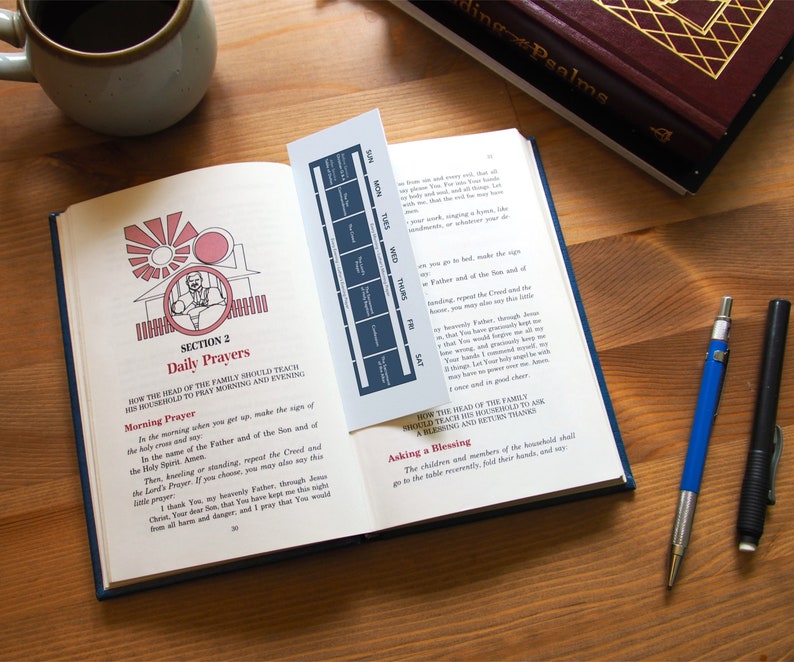 ding the Psalms
4
SECTION 2
Daily Prayers
HOW THE HEAD OF THE FAMILY SHOULD TEACH
HIS HOUSEHOLD TO PRAY MORNING AND EVENING
Morning Prayer
In the morning when you get up, make the sign of
the holy cross and say:
In the name of the Father and of the Son and of
the Holy Spirit. Amen.
Then, kneeling or standing, repeat the Creed and
the Lord's Prayer. If you choose, you may also say this
little prayer:
I thank You, my heavenly Father, through Jesus
Christ, Your dear Son, that You have kept me this night
from all harm and danger; and I pray that You would
30
SUN
MON
TUES
WED
THURS
FRI
SAT
Table of Duties
The Ten
Commandments
The Creed
The Lord's
Prayer
The Sacrament
of Holy Baptism
Confession
The Sacrament
of the Altar
31
so from sin and every evil, that all
ay please You. For into Your hands
my body and soul, and all things. Let
with me, that the evil foe may have
Amen.
o your work, singing a hymn, like
mandments, or whatever your de-
en you go to bed, make the sign
say:
e Father and of the Son and of
standing, repeat the Creed and the
choose, you may also say this little
my heavenly Father, through Jesus
on, that You have graciously kept me
that You would forgive me all my
one wrong, and graciously keep me
Your hands I commend myself, my
all things. Let Your holy angel be with
may have no power over me. Amen.
t once and in good cheer.
HOW THE HEAD OF THE FAMILY
SHOULD TEACH HIS HOUSEHOLD TO ASK
A BLESSING AND RETURN THANKS
Asking a Blessing
The children and members of the household shall
go to the table reverently, fold their hands, and say: